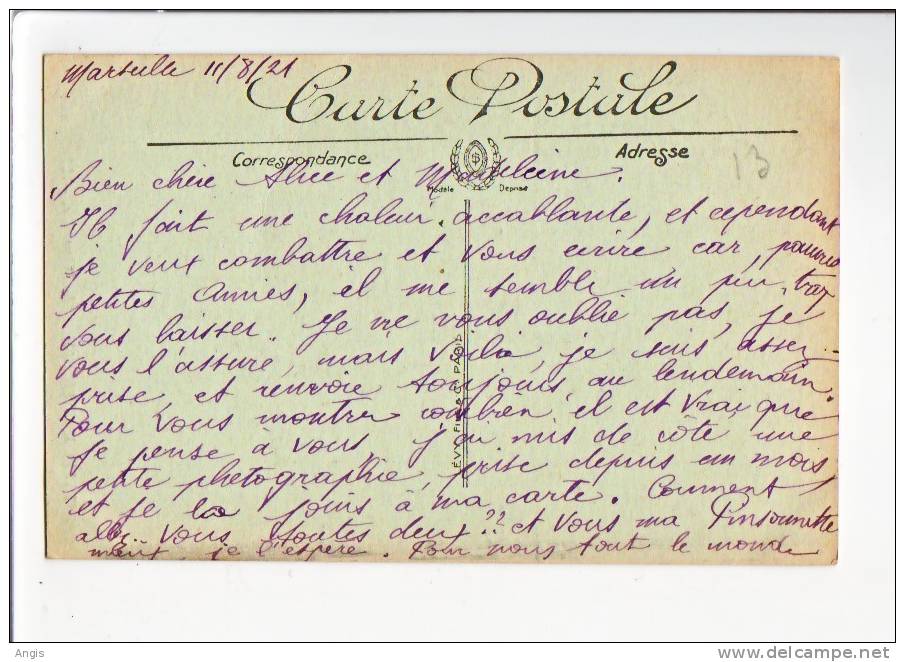 Marseille 11/8/21
Carte Postale
Correspondance
Adresse
13
Modèle Déposé
Bien chère Alice et Madeleine.
Il fait une chaleur accablante, et cependant
je veux combattre et vous écrire car, pauvres
petites Amies, il me semble un peu trop
vous laisser. Je ne vous oublie pas, je
vous l'assure, mais voilà, je suis assez
prise, et renvoie toujours au lendemain.
Pour vous montrer combien il est vrai que
je pense à vous, j'ai mis de côté une
petite photographie, prise depuis un mois,
et je la joins à ma carte. Comment
allez vous toutes deux?? et vous ma Pinsonnette
je l'espère. Pour nous tout le monde
LÉVY Fils & Cie PARIS
Angis
www.delcampe.net